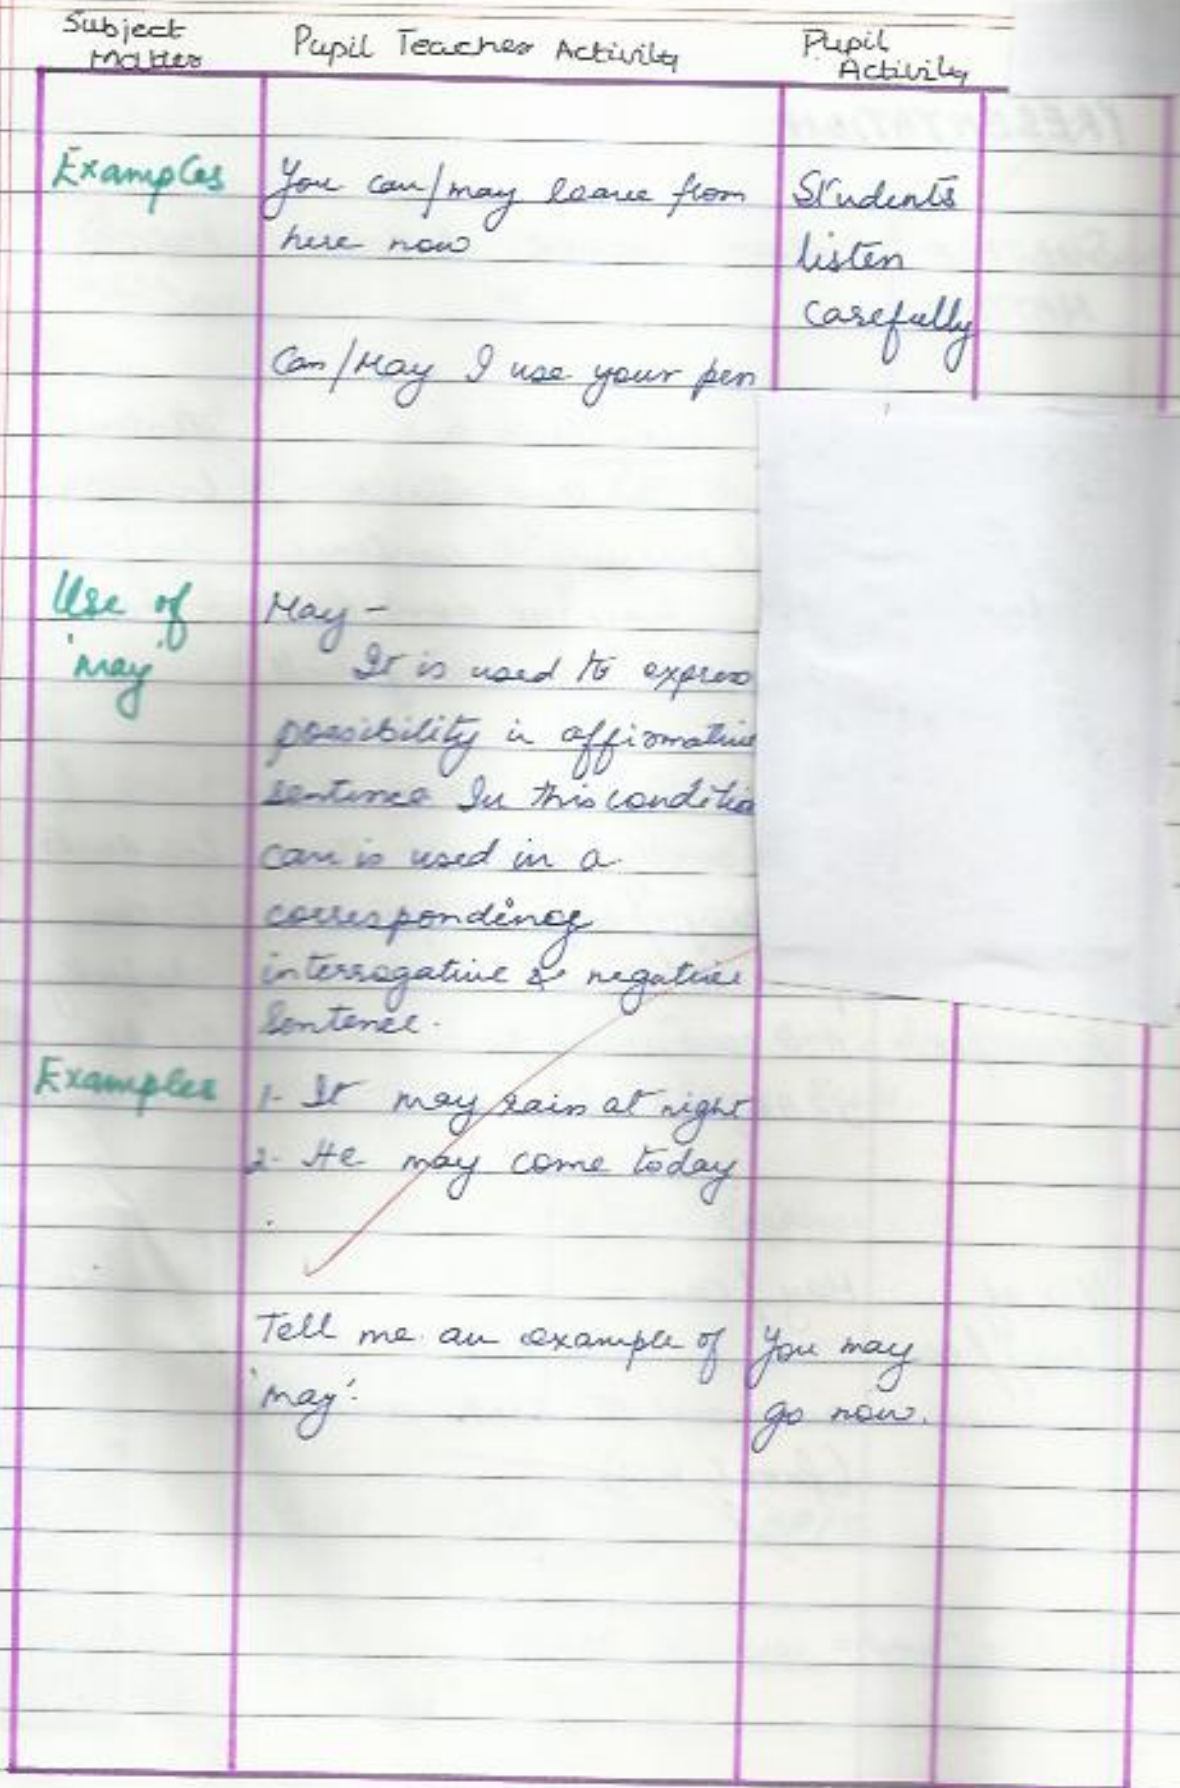 Subject Matter
Pupil Teacher Activity
Pupil Activity
Examples
You can/may leave from
here now
Students
listen
carefully
Can/May I use your pen
Use of
'may'
May -
It is used to express
possibility in affirmative
sentence In this conditio
can is used in a
corresponding
interrogative & negative
Sentence.
Examples
1. It may rain at night
2. He may come today
Tell me an example of
'may'.
You may
go now.